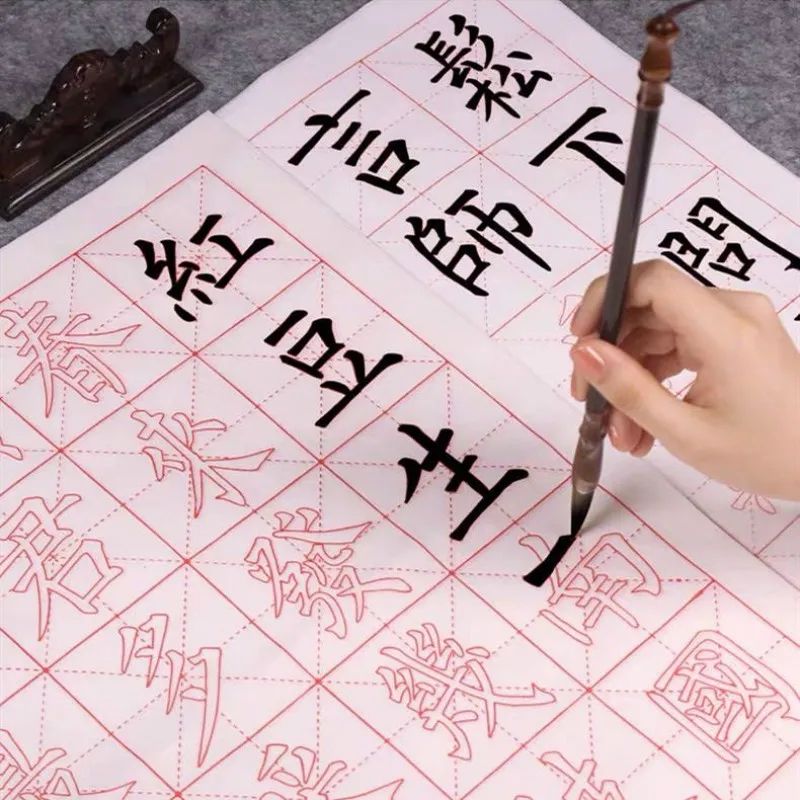 鬆下問
言師
紅豆生南國
春來發幾
君多